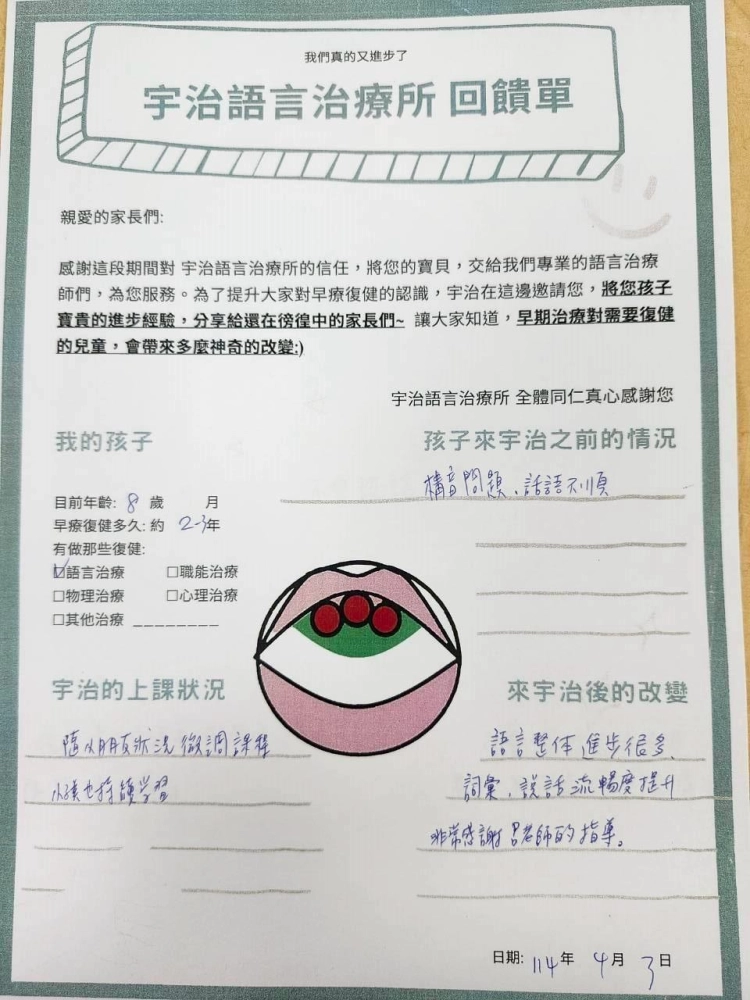 我們真的又進步了
宇治語言治療所 回饋單
親愛的家長們:
感謝這段期間對 宇治語言治療所的信任，將您的寶貝，交給我們專業的語言治療
師們，為您服務。為了提升大家對早療復健的認識，宇治在這邊邀請您，將您孩子
寶貴的進步經驗，分享給還在徬徨中的家長們~ 讓大家知道，早期治療對需要復健
的兒童，會帶來多麼神奇的改變:)
宇治語言治療所 全體同仁真心感謝您
我的孩子
目前年齡: 8 歲 月
早療復健多久: 約 2-3年
有做那些復健:
☑語言治療 □職能治療
□物理治療 □心理治療
□其他治療 ________
孩子來宇治之前的情況
構音問題、話語不順
宇治的上課狀況
隨小朋友狀況微調課程
小孩也持續學習
來宇治後的改變
語言整体進步很多、
詞彙、說話流暢度提升
非常感謝呂老師的指導。
日期: 114年 4月 3日